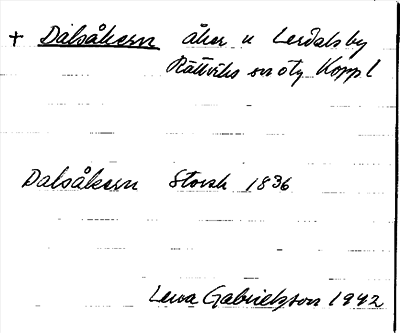 + Dalsåkern åker u Lerdalsby
Rättviks sn o tg Koppl
Dalsåkern Storsk 1836
Lena Gabrielsson 1992